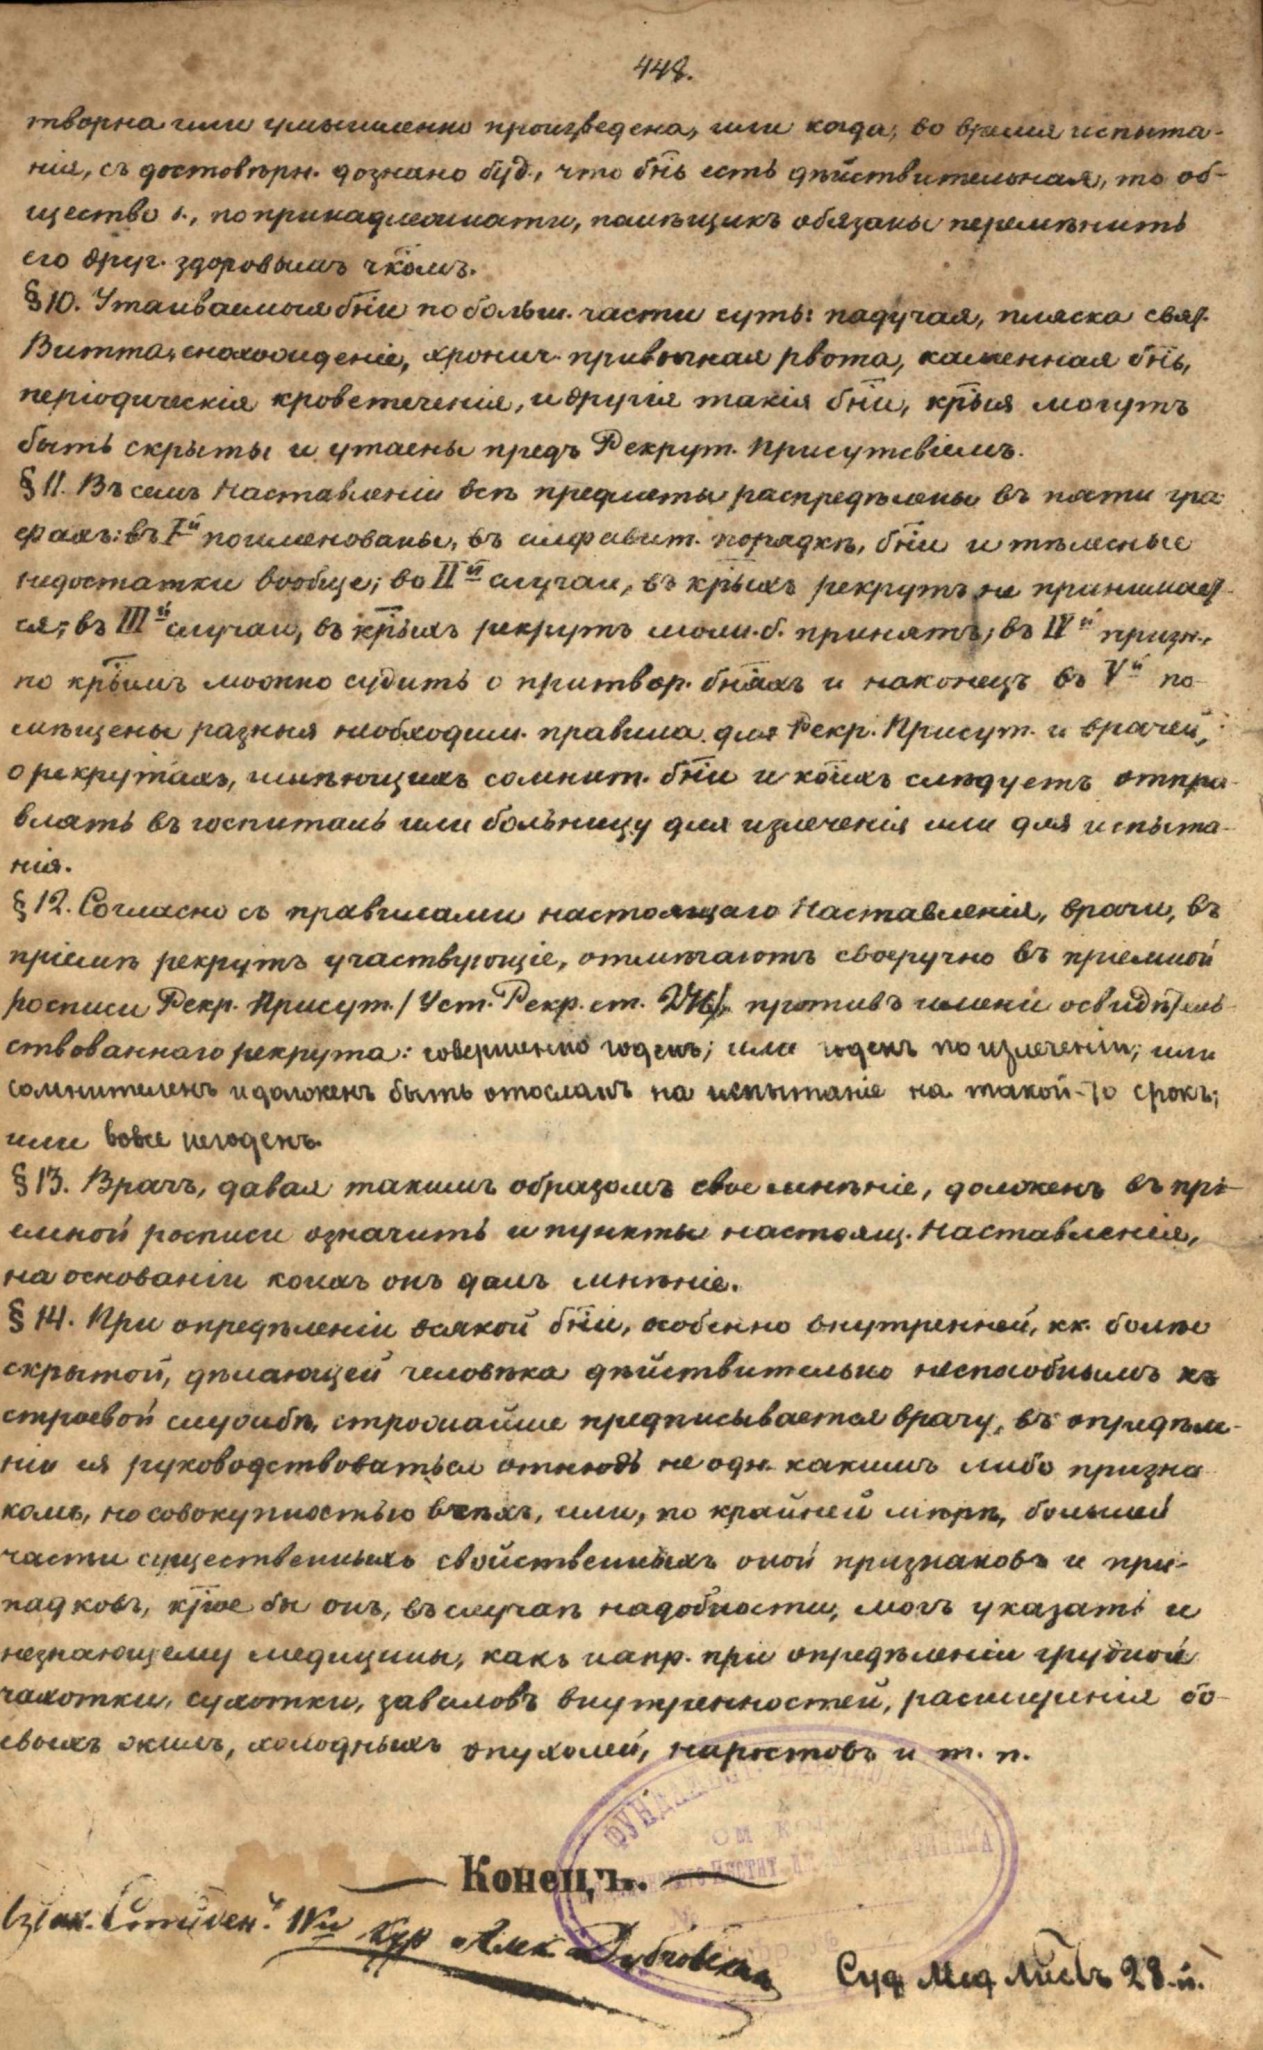 448.
творна или умышленно произведена, или когда, во время испыта-
нія, съ достовѣрн. дознано буд., что бнь есть дѣйствительная, то об-
щество и., по принадлежности, помѣщикъ обязаны перемѣнить
его друг. здоровымъ чкомъ.
§ 10. Утаиваемыя бни по больш. части суть: падучая, пляска свят.
Витта, снохожденіе, хронич. привычная рвота, каменная бнь,
періодическія кровотеченія, и другія такія бни, крыя могутъ
быть скрыты и утаены предъ Рекрут. Присутствіемъ.
§ 11. Въ семъ Наставленіи всѣ предметы распредѣлены въ пяти гра-
фахъ: въ Iй поименованы, въ алфавит. порядкѣ, бни и тѣлесные
недостатки вообще; во IIй случаи, въ крыхъ рекрутъ не принимает-
ся; въ IIIй случаи, въ крыхъ рекрутъ мож. б. принятъ; въ IVй призн.,
по крымъ можно судить о притвор. бняхъ и наконецъ въ Vй по-
мѣщены разныя необходим. правила для Рекр. Присут. и врачей,
о рекрутахъ, имѣющихъ сомнит. бни и коихъ слѣдуетъ отпра-
влять въ госпиталь или больницу для излеченія или для испыта-
нія.
§ 12. Согласно съ правилами настоящаго Наставленія, врачи, въ
пріемѣ рекрутъ участвующіе, отмѣчаютъ своеручно въ пріемной
росписи Рекр. Присут. (Уст. Рекр. ст. противъ имени освидѣтель-
ствованнаго рекрута: совершенно годенъ; или годенъ по излеченіи; или
сомнителенъ и долженъ быть отосланъ на испытаніе на такой-то срокъ;
или вовсе негоденъ.
§ 13. Врачъ, давая такимъ образомъ свое мнѣніе, долженъ въ прі-
емной росписи означить и пункты настоящ. Наставленія,
на основаніи коихъ онъ далъ мнѣніе.
§ 14. При опредѣленіи всякой бни, особенно внутренней, кк. болѣе
скрытой, дѣлающей человѣка дѣйствительно неспособнымъ къ
строевой службѣ, строжайше предписывается врачу, въ опредѣле-
ніи ея руководствоваться отнюдь не одн. какимъ либо призна-
комъ, но совокупностью всѣхъ, или, по крайней мѣрѣ, большей
части существенныхъ свойственныхъ оной признаковъ и при-
падковъ, крые бы онъ, въ случаѣ надобности, могъ указать и
незнающему медицины, какъ напр. при опредѣленіи грудной
чахотки, сухотки, заваловъ внутренностей, расширенія бо-
евыхъ жилъ, холодныхъ опухолей, наростовъ и т. п.
Конецъ.
Студен. IVй Кур Алек. Дубровскій
Суд Мед Листъ 28.й.